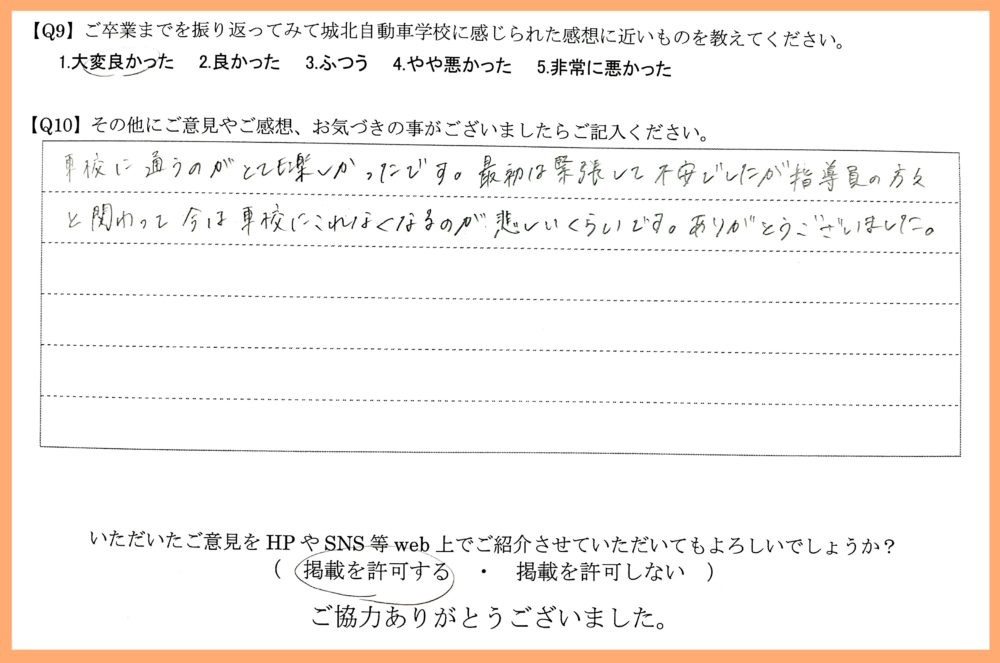 【Q9】ご卒業までを振り返ってみて城北自動車学校に感じられた感想に近いものを教えてください。
1.大変良かった 2.良かった 3.ふつう 4.やや悪かった 5.非常に悪かった
【Q10】その他にご意見やご感想、お気づきの事がございましたらご記入ください。
車校に通うのがとても楽しかったです。最初は緊張して不安でしたが指導員の方々
と関わって今は車校にこれなくなるのが悲しいくらいです。ありがとうございました。
いただいたご意見をHPやSNS等web上でご紹介させていただいてもよろしいでしょうか?
( 掲載を許可する ・ 掲載を許可しない )
ご協力ありがとうございました。